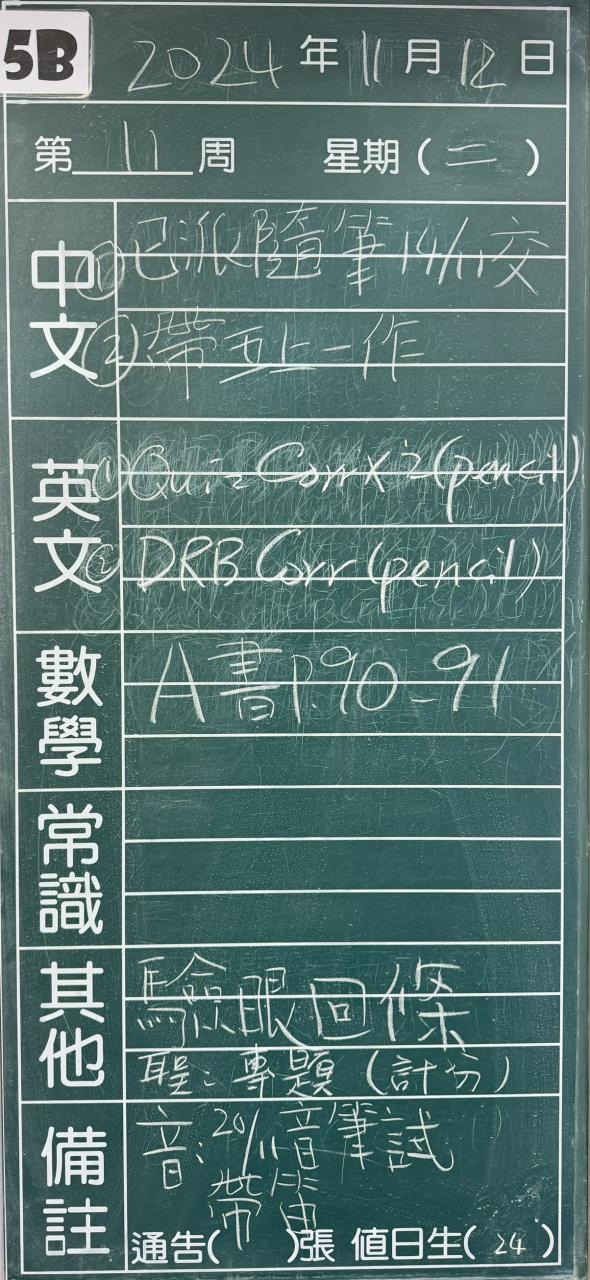 5B
2024年11月12日
第11周 星期(二)
中文
①已派隨筆14/11交
②帶五上一作
英文
①Quiz Corr x 2 (pencil)
②DRB Corr (pencil)
數學
A書P.90-91
常識
其他
驗眼回條
聖:專題(計分)
備註
音:20/11音筆試
帶
通告( )張 值日生(24)